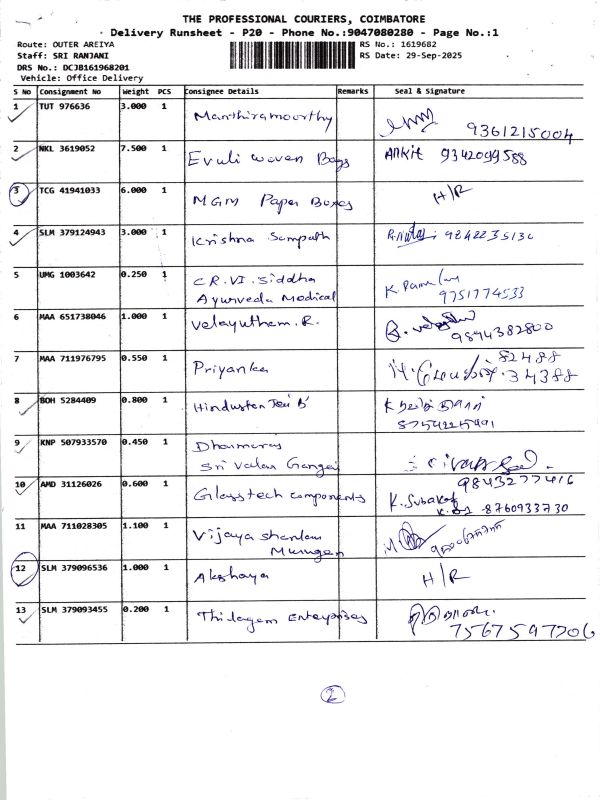 THE PROFESSIONAL COURIERS, COIMBATORE
Delivery Runsheet - P20 - Phone No.:9047080280 - Page No.:1
Route: OUTER AREIYA
RS No.: 1619682
Staff: SRI RANJANI
RS Date: 29-Sep-2025
DRS No.: DCJB161968201
Vehicle: Office Delivery
S No Consignment No Weight PCS Consignee Details Remarks Seal & Signature
1 TUT 976636 3.000 1 Manthiramoorthy 9361215004
2 NKL 3619052 7.500 1 Evuli woven Bags Ankit 9342099588
3 TCG 41941033 6.000 1 MGM Paper Boxes H/R
4 SLM 379124943 3.000 1 Krishna Sampath 9842235130
5 UMG 1003642 0.250 1 C.R.VI.Siddha
Ayurveda Medical K.
9751774533
6 MAA 651738046 1.000 1 Velayutham.R.
9894382800
7 MAA 711976795 0.550 1 Priyanka 82488
34388
8 BOH 5284409 0.800 1 Hindustan
9 KNP 507933570 0.450 1
Sri Valan
10 AMD 31126026 0.600 1 Glasstech components 9843277416
8760933730
11 MAA 711028305 1.100 1 Vijaya
Murugan
12 SLM 379096536 1.000 1 Akshaya H/R
13 SLM 379093455 0.200 1 Thilagam Enterprises
7567597206
2